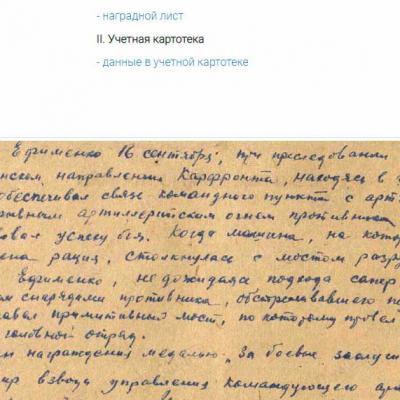 - наградной лист
II. Учетная картотека
- данные в учетной картотеке
Ефименко 16 сентября, при преследовании
направлении Карфронта, находясь в
обеспечивал связь командного пункта с арт
артиллерийским огнем противника
успеху боя. Когда машина, на кот
рация, столкнулась с мостом разр
Ефименко, не дожидаясь подхода сапер
снарядами противника, обстреливавшего
примитивный мост, по которому провел
головной отряд.
награждения медалью "За боевые заслуги
взвода управления командующего ар